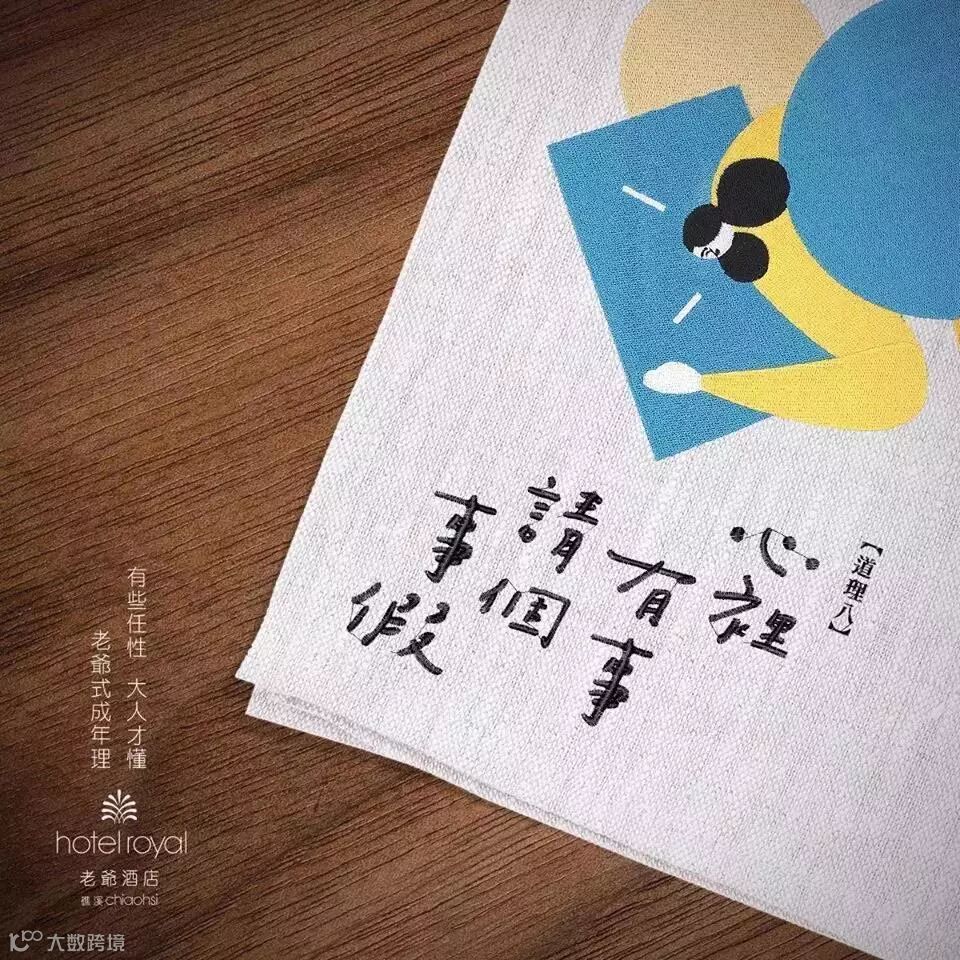 【道理八】
心裡
有事
請個
事假
有些任性 大人才懂
老爺式成年理
hotel royal
老爺酒店
礁溪 chiaohsi
大数跨境